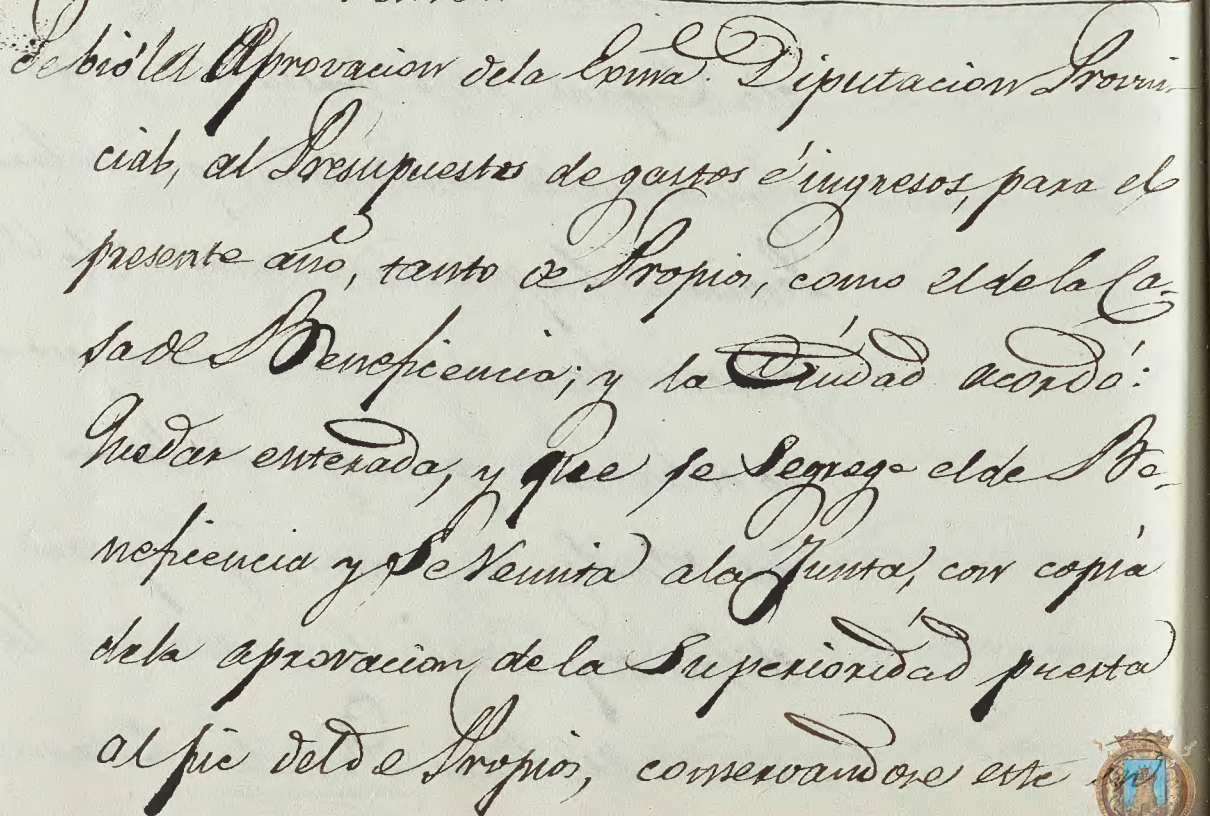 Se bió la Aprovacion dela Exma. Diputacion Provin-
cial, al Presupuesto de gastos é ingresos, para el
presente año, tanto de Propios, como el de la Ca-
sa de Beneficencia; y la Ciudad acordó:
Quedar enterada, y que se segregue el de Be-
neficencia y se Remita a la Junta, con copia
dela aprovacion de la Superioridad puesta
al pie del de Propios, conservandose este